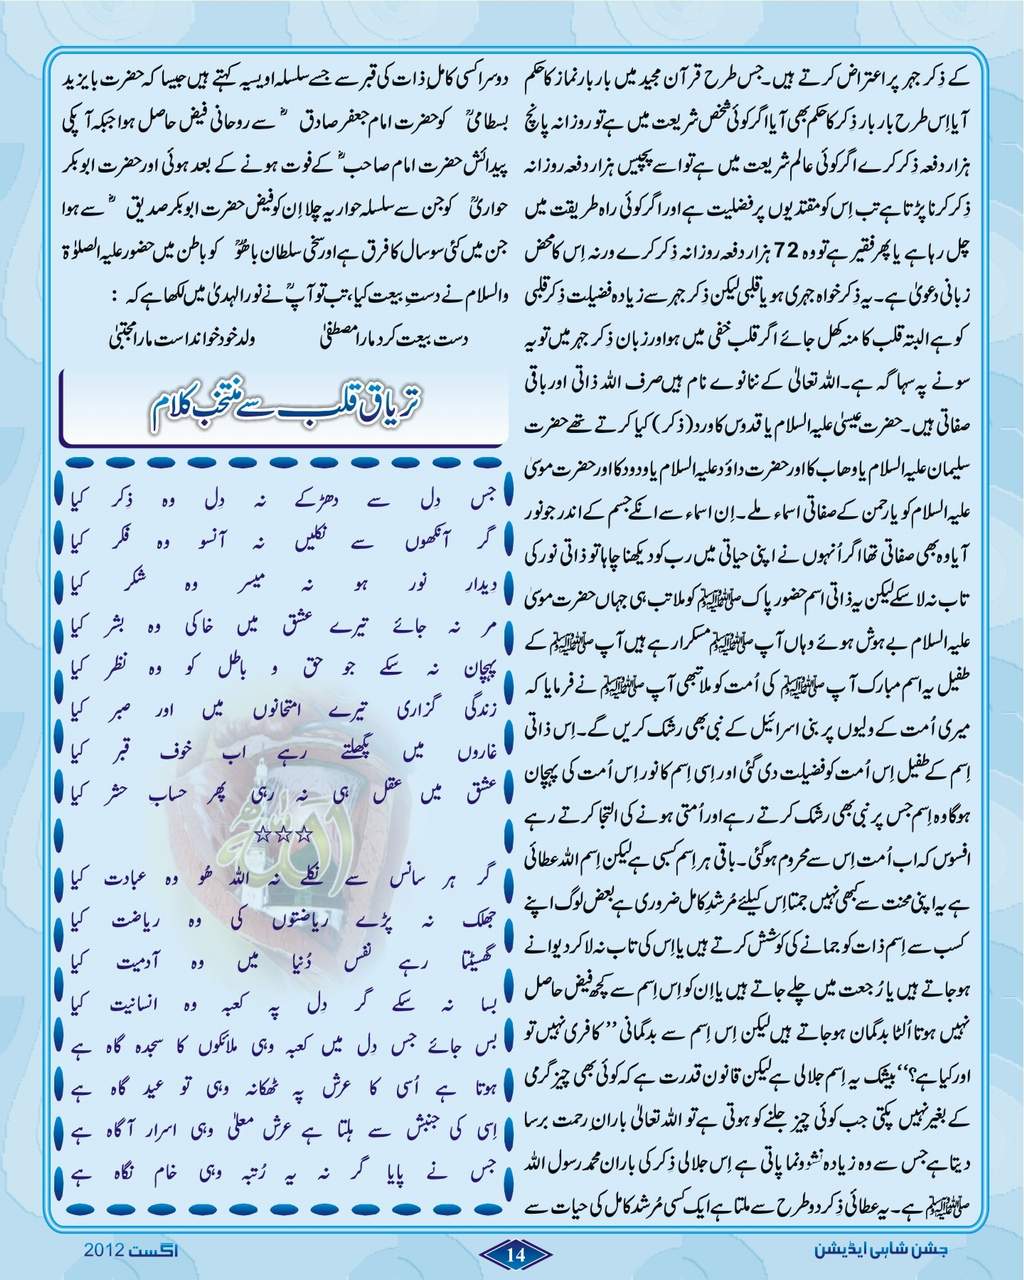 کے ذِکر جہر پر اعتراض کرتے ہیں۔ جس طرح قرآن مجید میں بار بار نماز کا حکم
آیا اِس طرح بار بار ذِکر کا حکم بھی آیا اگر کوئی شخص شریعت میں ہے تو روزانہ پانچ
ہزار دفعہ ذِکر کرے اگر کوئی عالم شریعت میں ہے تو اسے پچیس ہزار دفعہ روزانہ
ذِکر کرنا پڑتا ہے تب اِس کو مقتدیوں پر فضلیت ہے اور اگر کوئی راہ طریقت میں
چل رہا ہے یا پھر فقیر ہے تو وہ 72 ہزار دفعہ روزانہ ذِکر کرے ورنہ اِس کا محض
زبانی دعویٰ ہے۔ یہ ذِکر خواہ جہری ہو یا قلبی لیکن ذِکر جہر سے زیادہ فضیلت ذِکر قلبی
کو ہے البتہ قلب کا منہ کھل جائے اگر قلب خفی میں ہو اور زبان ذِکر جہر میں تو یہ
سونے پہ سہاگہ ہے۔ اللہ تعالیٰ کے ننانوے نام ہیں صرف اللہ ذاتی اور باقی
صفاتی ہیں۔ حضرت عیسیٰ علیہ السلام یا قدوس کا ورد (ذکر) کیا کرتے تھے حضرت
سلیمان علیہ السلام یا وھاب کا اور حضرت داؤد علیہ السلام یا ودود کا اور حضرت موسیٰ
علیہ السلام کو یا رحمن کے صفاتی اسماء ملے۔ اِن اسماء سے انکے جسم کے اندر جو نور
آیا وہ بھی صفاتی تھا اگر اُنہوں نے اپنی حیاتی میں رب کو دیکھنا چاہا تو ذاتی نور کی
تاب نہ لا سکے لیکن یہ ذاتی اسم حضور پاک ﷺ کو ملا تب ہی جہاں حضرت موسیٰ
علیہ السلام بے ہوش ہوئے وہاں آپ ﷺ مسکرا رہے ہیں آپ ﷺ کے
طفیل یہ اسم مبارک آپ ﷺ کی اُمت کو ملا تبھی آپ ﷺ نے فرمایا کہ
میری اُمت کے ولیوں پر بنی اسرائیل کے نبی بھی رشک کریں گے۔ اِس ذاتی
اِسم کے طفیل اِس اُمت کو فضیلت دی گئی اور اِسی اِسم کا نور اِس اُمت کی پہچان
ہوگا وہ اِسم جس پر نبی بھی رشک کرتے رہے اور اُمتی ہونے کی التجا کرتے رہے
افسوس کہ اب اُمت اِس سے محروم ہوگئی۔ باقی ہر اِسم کسبی ہے لیکن اِسم اللہ عطائی
ہے یہ اپنی محنت سے کبھی نہیں جمتا اِس کیلئے مُرشدِ کامل ضروری ہے بعض لوگ اپنے
کسب سے اِسم ذات کو جمانے کی کوشش کرتے ہیں یا اِس کی تاب نہ لا کر دیوانے
ہو جاتے ہیں یا رُجعت میں چلے جاتے ہیں یا اِن کو اِس اِسم سے کچھ فیض حاصل
نہیں ہوتا اُلٹا بدگمان ہوجاتے ہیں لیکن اِس اِسم سے بدگمانی ’’کافری نہیں تو
اور کیا ہے؟‘‘ بیشک یہ اِسم جلالی ہے لیکن قانون قدرت ہے کہ کوئی بھی چیز گرمی
کے بغیر نہیں پکتی جب کوئی چیز جلنے کو ہوتی ہے تو اللہ تعالیٰ بارانِ رحمت برسا
دیتا ہے جس سے وہ زیادہ نشوونما پاتی ہے اِس جلالی ذِکر کی باران محمد رسول اللہ
ﷺ ہے۔ یہ عطائی ذِکر دو طرح سے ملتا ہے ایک کسی مُرشد کامل کی حیات سے
دوسرا کسی کامل ذات کی قبر سے جسے سلسلہ اویسیہ کہتے ہیں جیسا کہ حضرت بایزید
بسطامیؒ کو حضرت امام جعفر صادقؓ سے روحانی فیض حاصل ہوا جبکہ آپکی
پیدائش حضرت امام صاحبؓ کے فوت ہونے کے بعد ہوئی اور حضرت ابوبکر
حواریؒ کو جن سے سلسلہ حواریہ چلا اِن کو فیض حضرت ابوبکر صدیقؓ سے ہوا
جن میں کئی سو سال کا فرق ہے اور سخی سلطان باھُوؒ کو باطن میں حضور علیہ الصلوٰۃ
والسلام نے دستِ بیعت کیا، تب تو آپؒ نے نور الہدیٰ میں لکھا ہے کہ :
دست بیعت کرد مارا مصطفیٰ ولد خود خوانداست مارا مجتبیٰ
تریاق قلب سے منتخب کلام
جس دِل سے دھڑکے نہ دِل وہ ذِکر کیا
گر آنکھوں سے نکلیں نہ آنسو وہ فکر کیا
دِیدارِ نور ہو نہ میسر وہ شکر کیا
مر نہ جائے تیرے عشق میں خاکی وہ بشر کیا
پہچان نہ سکے جو حق و باطل کو وہ نظر کیا
زندگی گزاری تیرے امتحانوں میں اور صبر کیا
غاروں میں پگھلتے رہے اب خوف قبر کیا
عشق میں عقل ہی نہ رہی پھر حساب حشر کیا
☆☆☆
گر ہر سانس سے نکلے نہ اللہ ھُو وہ عبادت کیا
جھلک نہ پڑے ریاضتوں کی وہ ریاضت کیا
گھسیٹتا رہے نفس دُنیا میں وہ آدمیت کیا
بسا نہ سکے گر دِل پہ کعبہ وہ انسانیت کیا
بس جائے جس دِل میں کعبہ وہی ملائکوں کا سجدہ گاہ ہے
ہوتا ہے اُسی کا عرش پہ ٹھکانہ وہی تو عید گاہ ہے
اِسی کی جنبش سے ہلتا ہے عرش معلیٰ وہی اسرار آگاہ ہے
جس نے پایا گر نہ یہ رُتبہ وہی خام نگاہ ہے
جشن شاہی ایڈیشن
14
اگست 2012